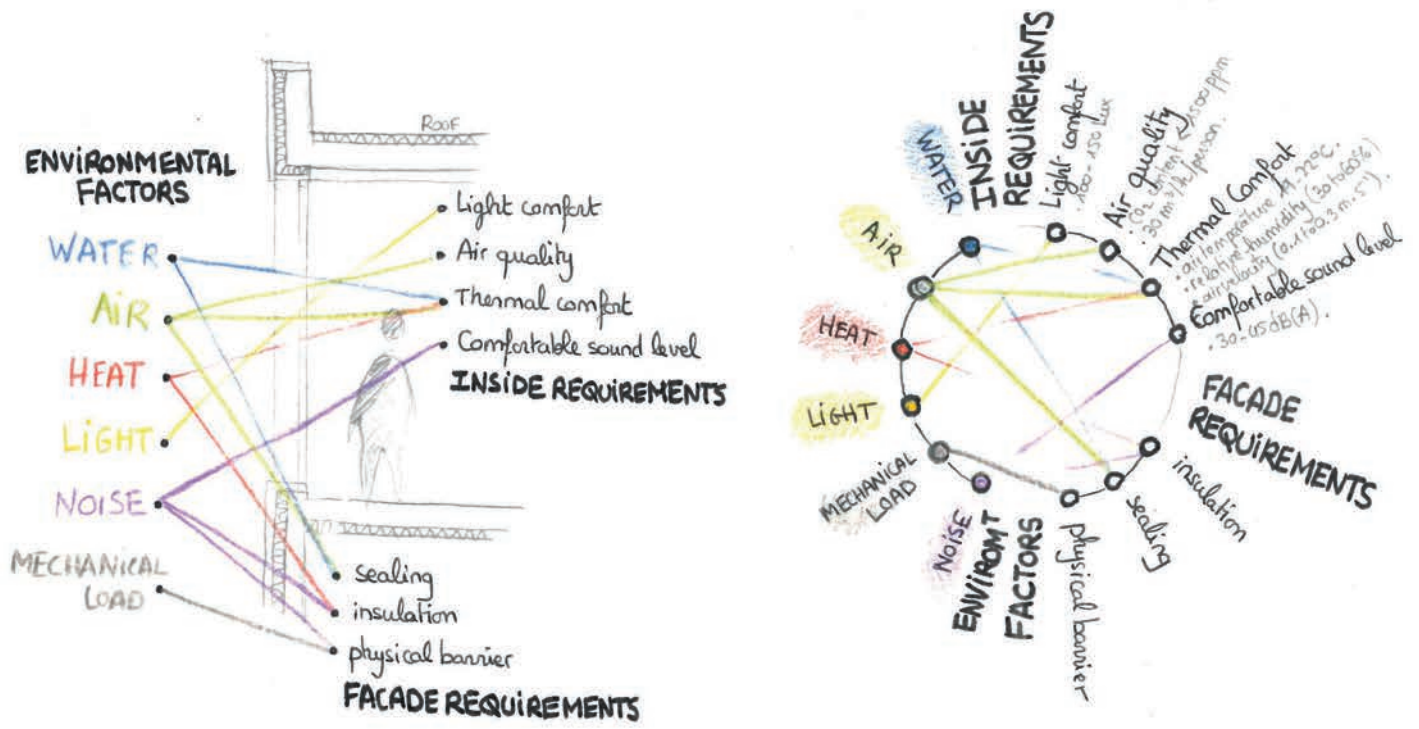 ROOF
ENVIRONMENTAL
FACTORS
WATER
AIR
HEAT
LIGHT
NOISE
MECHANICAL
LOAD
Light comfort
Air quality
Thermal comfort
Comfortable sound level
INSIDE REQUIREMENTS
sealing
insulation
physical barrier
FACADE REQUIREMENTS
WATER
AIR
HEAT
LIGHT
MECHANICAL
LOAD
NOISE
ENVIROMT
FACTORS
INSIDE
REQUIREMENTS
Light comfort
. 100-150 Lux
Air quality
. CO2 content < 1500 ppm
. 30 m³/h/person.
Thermal Comfort
. air temperature 19-22°C.
. relative humidity (30 to 60%)
. air velocity (0.1 to 0.3 m.s⁻¹).
Comfortable sound level
. 30-45dB(A).
FACADE
REQUIREMENTS
insulation
sealing
physical barrier